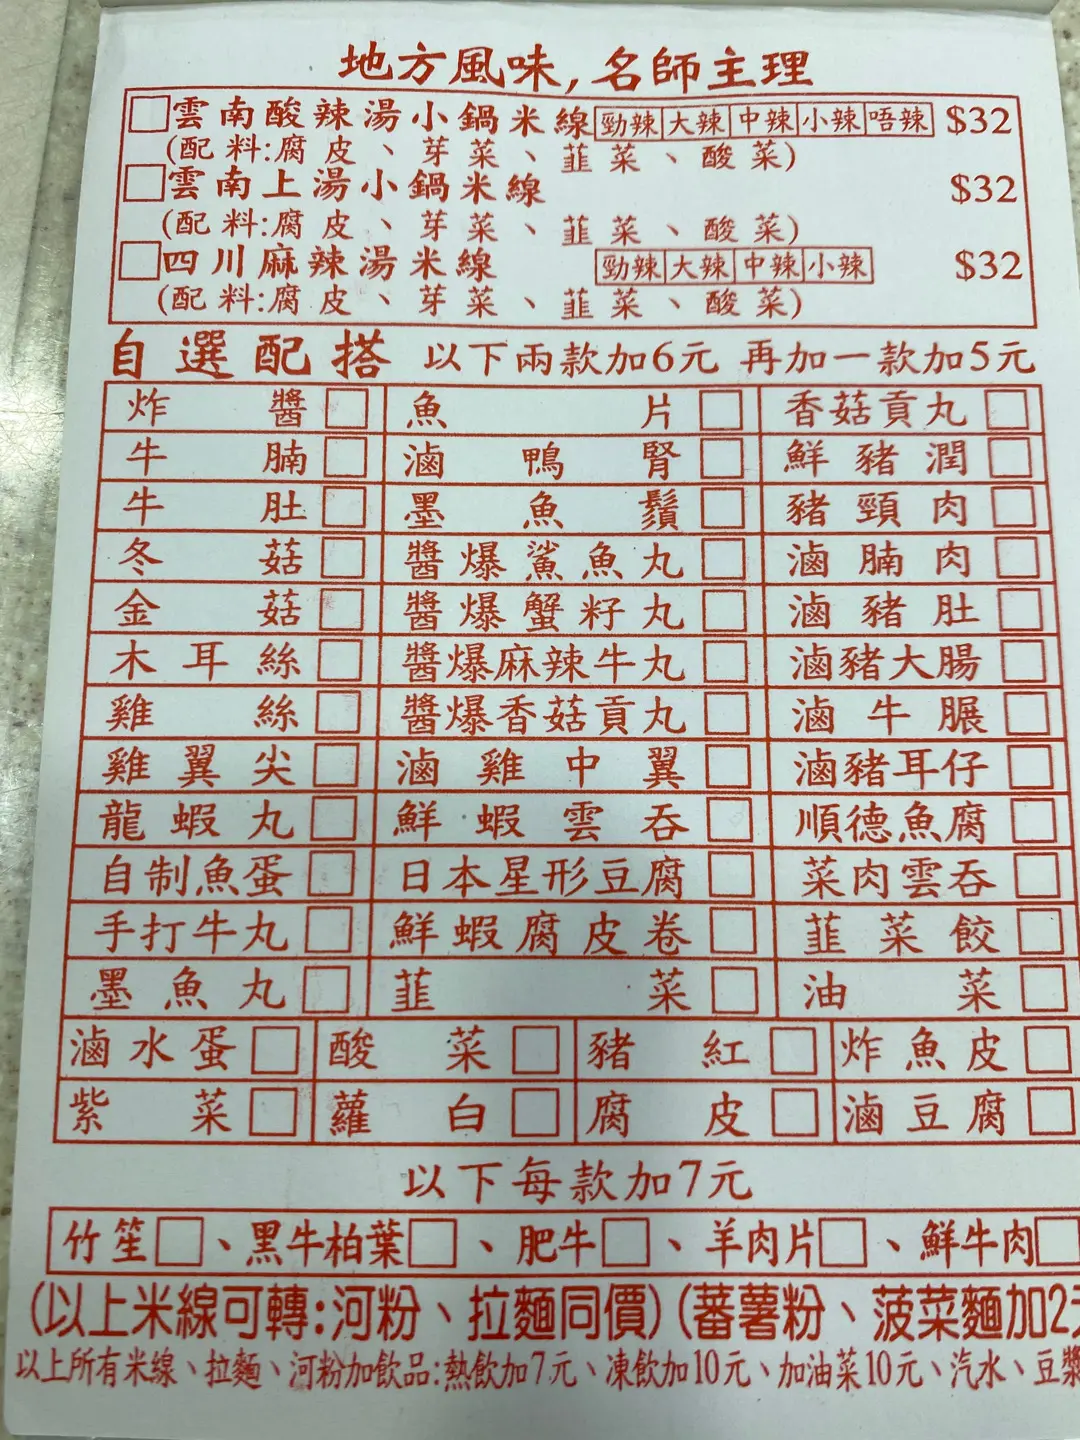 地方風味,名師主理
雲南酸辣湯小鍋米線 勁辣 大辣 中辣 小辣 唔辣 $32
(配料:腐皮、芽菜、韮菜、酸菜)
雲南上湯小鍋米線 $32
(配料:腐皮、芽菜、韮菜、酸菜)
四川麻辣湯米線 勁辣 大辣 中辣 小辣 $32
(配料:腐皮、芽菜、韮菜、酸菜)
自選配搭 以下兩款加6元 再加一款加5元
炸醬 魚片 香菇貢丸
牛腩 滷鴨腎 鮮豬潤
牛肚 墨魚鬚 豬頸肉
冬菇 醬爆鯊魚丸 滷腩肉
金菇 醬爆蟹籽丸 滷豬肚
木耳絲 醬爆麻辣牛丸 滷豬大腸
雞絲 醬爆香菇貢丸 滷牛𦟌
雞翼尖 滷雞中翼 滷豬耳仔
龍蝦丸 鮮蝦雲吞 順德魚腐
自制魚蛋 日本星形豆腐 菜肉雲吞
手打牛丸 鮮蝦腐皮卷 韮菜餃
墨魚丸 韮菜 油菜
滷水蛋 酸菜 豬紅 炸魚皮
紫菜 蘿白 腐皮 滷豆腐
以下每款加7元
竹笙、黑牛柏葉、肥牛、羊肉片、鮮牛肉
(以上米線可轉:河粉、拉麵同價)(蕃薯粉、菠菜麵加2
以上所有米線、拉麵、河粉加飲品:熱飲加7元、凍飲加10元、加油菜10元、汽水、豆漿